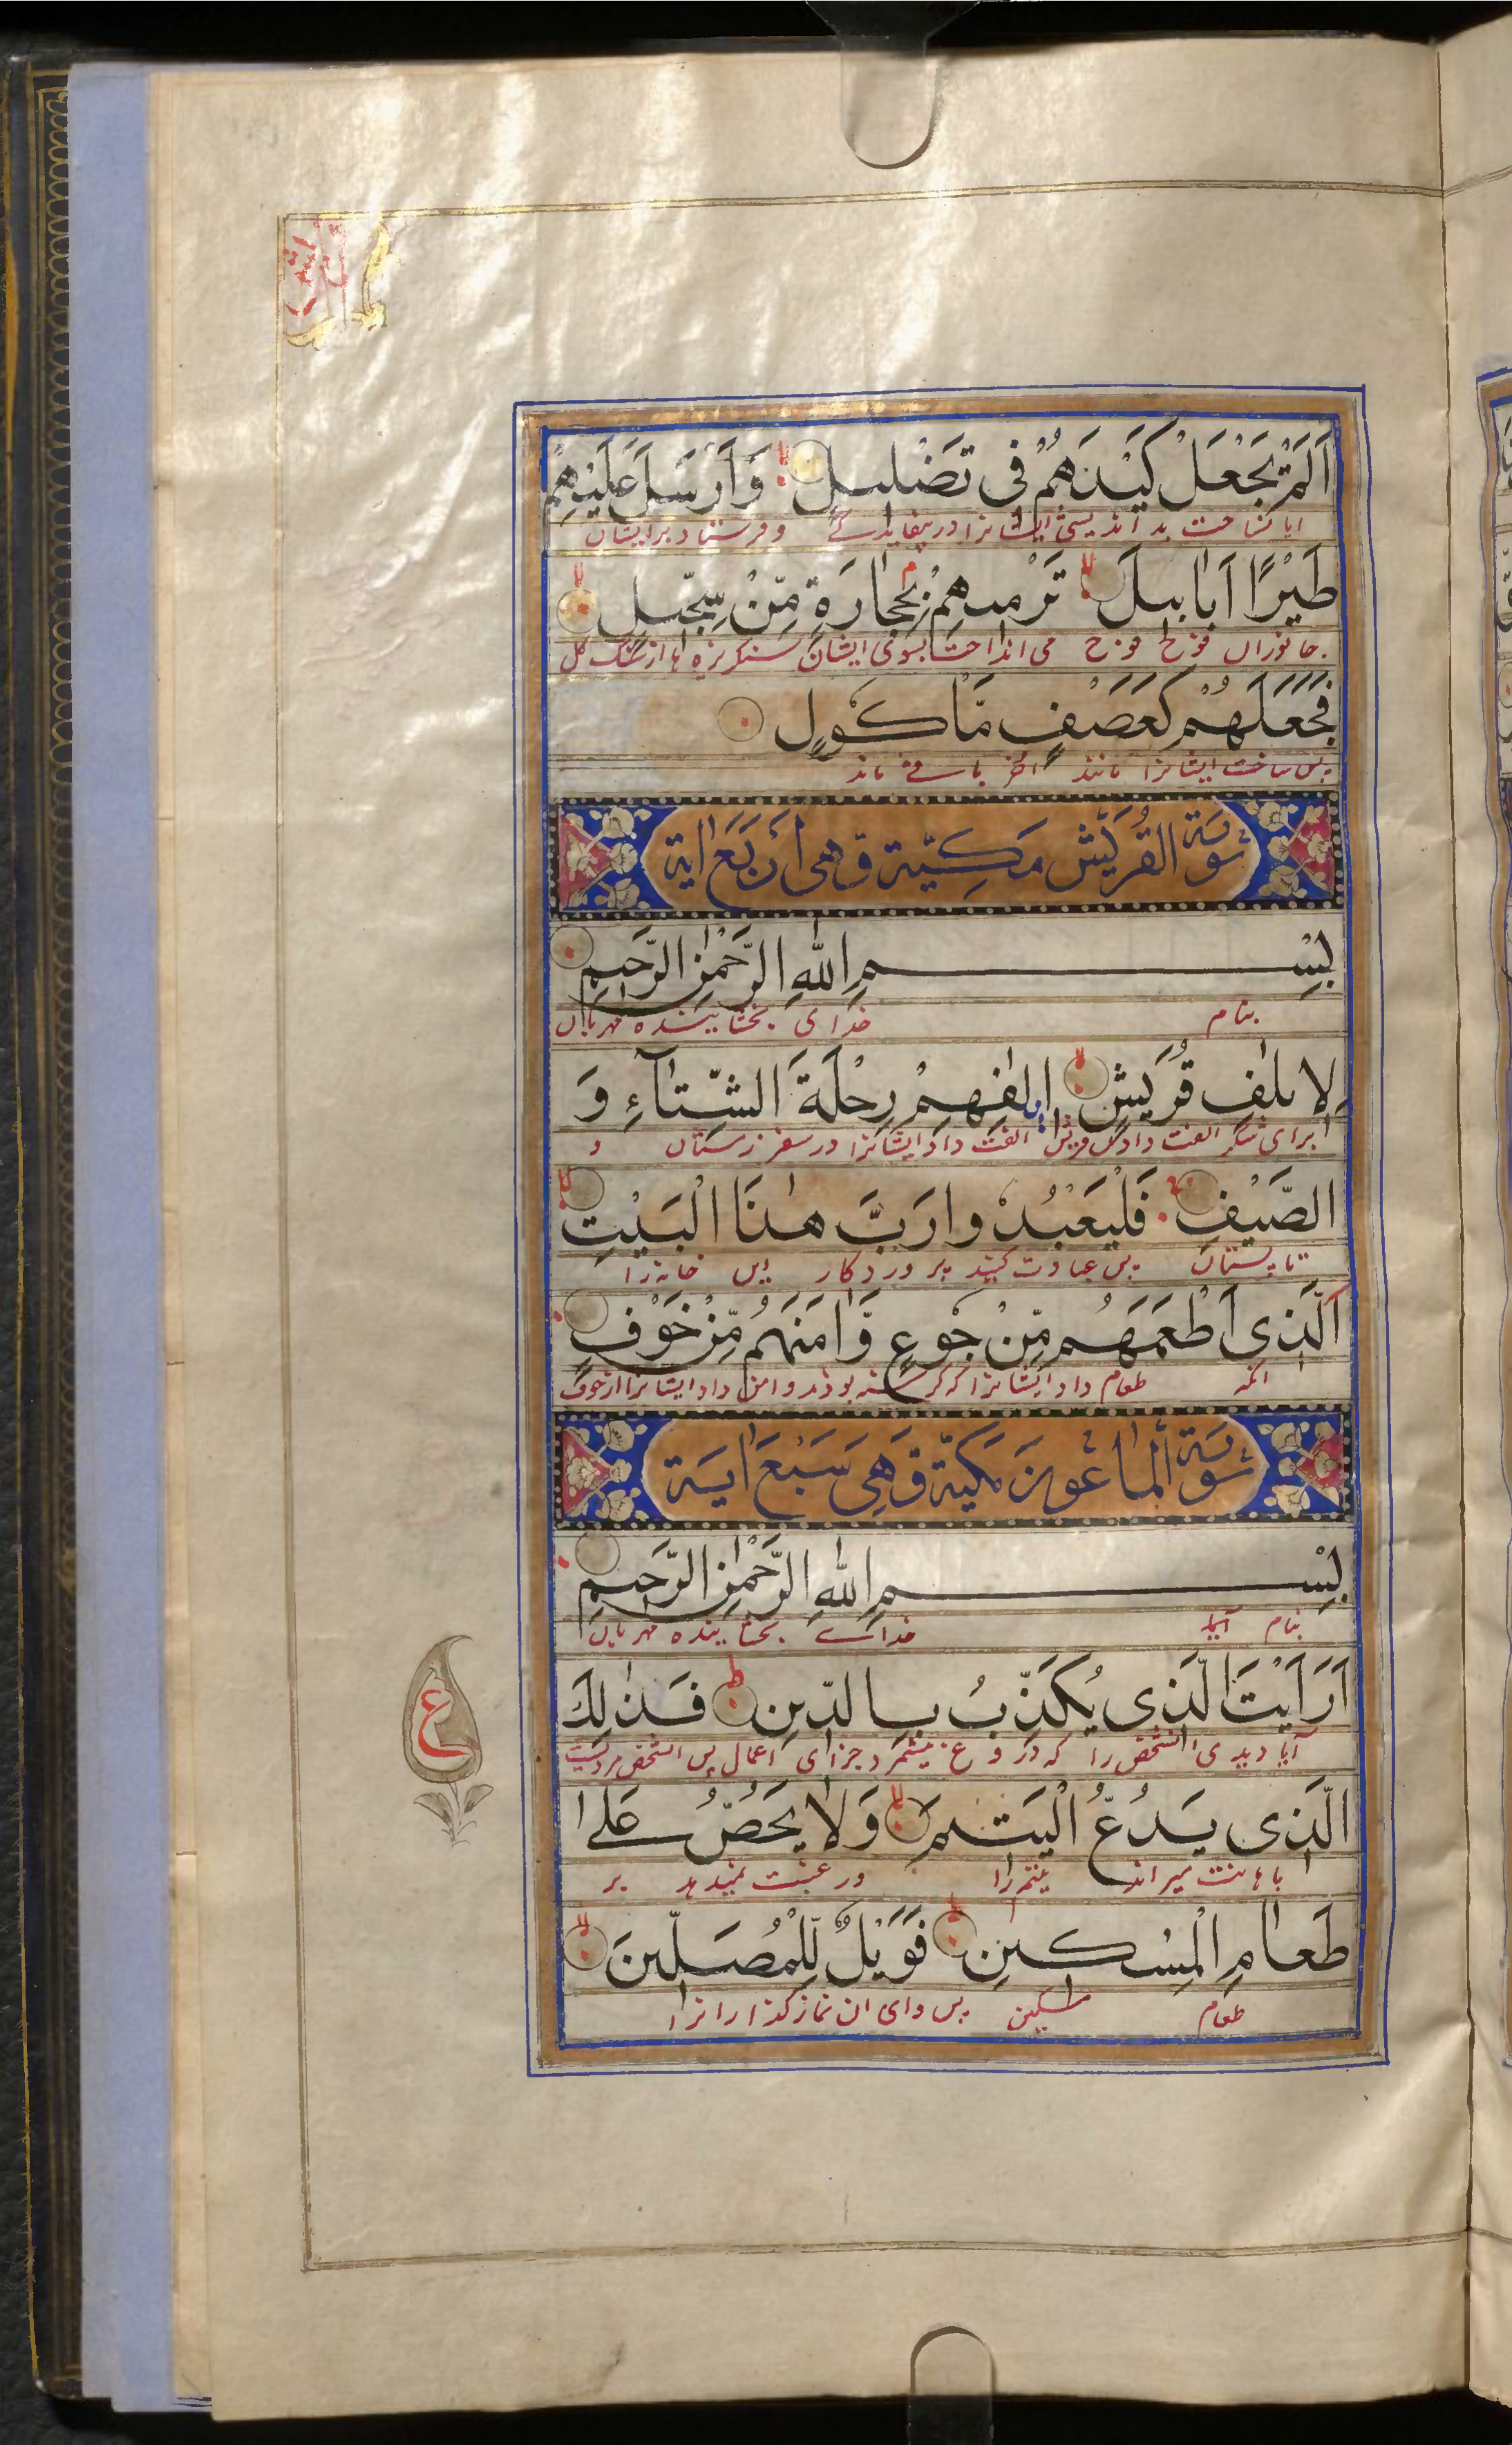 اَلَمْ يَجْعَلْ كَيْدَهُمْ فِى تَضْلِيلٍ وَاَرْسَلَ عَلَيْهِمْ
و فرستاد بر ایشان
طَيْرًا اَبَابِيلَ تَرْمِيهِمْ بِحِجَارَةٍ مِّنْ سِجِّيلٍ
جانوران فوج فوج می انداخت بسوی ایشان سنکریزه ها از سنک کل
فَجَعَلَهُمْ كَعَصْفٍ مَّاْكُولٍ
پس ساخت ایشانرا مانند
سُورَة القُرَيْش مَكِيَّة وَّهى اَرْبَعَ اٰية
بِسْمِ اللّٰهِ الرَّحْمٰنِ الرَّحِيمِ
بنام خدای بخشاینده مهربان
لِاِيلٰفِ قُرَيْشٍ اٖلٰفِهِمْ رِحْلَةَ الشِّتَآءِ وَ
برای شکر الفت دادن قریش الفت داد ایشانرا در سفر زمستان و
الصَّيْفِ فَلْيَعْبُدُوا رَبَّ هٰذَا الْبَيْتِ
تابستان پس عبادت کنید پروردکار این خانه را
اَلَّذِى اَطْعَمَهُمْ مِّنْ جُوعٍ وَّاٰمَنَهُمْ مِّنْ خَوْفٍ
انکه طعام داد ایشانرا که کرسنه بودند و امن داد ایشانرا از خوف
سُورَة اَلْمَاعُونَ مَكِيَّة وَّهِىَ سَبْعَ اٰيَة
بِسْمِ اللّٰهِ الرَّحْمٰنِ الرَّحِيمِ
بنام خدای بخشاینده مهربان
اَرَاَيْتَ الَّذِى يُكَذِّبُ بِالدِّينِ فَذٰلِكَ
آیا دیدی انشخص را که دروغ میشمرد جزای اعمال پس انشخص مردیست
ع
الَّذِى يَدُعُّ الْيَتِيمَ وَلَا يَحُضُّ عَلٰى
باهانت میراند یتیم را و رغبت نمیدهد بر
طَعَامِ الْمِسْكِينِ فَوَيْلٌ لِّلْمُصَلِّينَ
طعام مسکین پس وای ان نماز کذارانرا